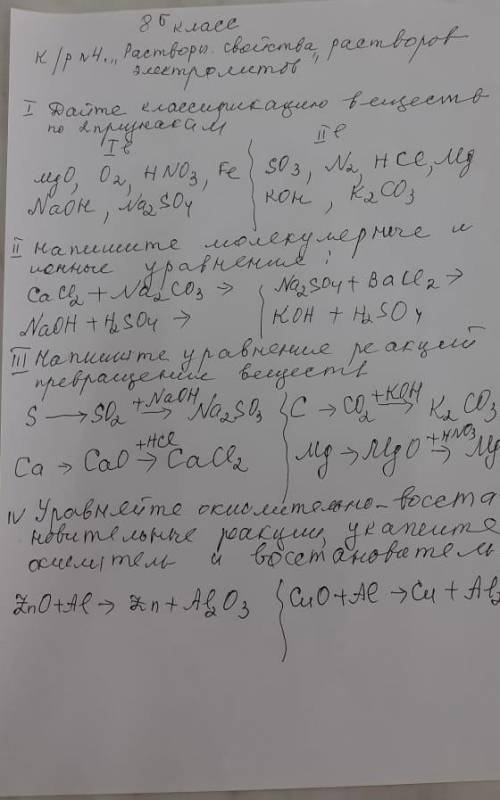 8б класс
К/р №4. „Растворы. Свойства растворов
электролитов"
I Дайте классификацию веществ
по 2 признакам
I в
II в
MgO, O2, HNO3, Fe
NaOH, Na2SO4
SO3, N2, HCl, Mg
KOH, K2CO3
II Напишите молекулярные и
ионные уравнение:
CaCl2 + Na2CO3 →
NaOH + H2SO4 →
Na2SO4 + BaCl2 →
KOH + H2SO4
III Напишите уравнение реакций
превращение веществ
S → SO2 +NaOH→ Na2SO3
Ca → CaO +HCl→ CaCl2
C → CO2 +KOH→ K2CO3
Mg → MgO +HNO3→ Mg
IV Уравняйте окислительно-восста
новительные реакции, укажите
окислитель и восстанователь
ZnO + Al → Zn + Al2O3
CuO + Al → Cu + Al2